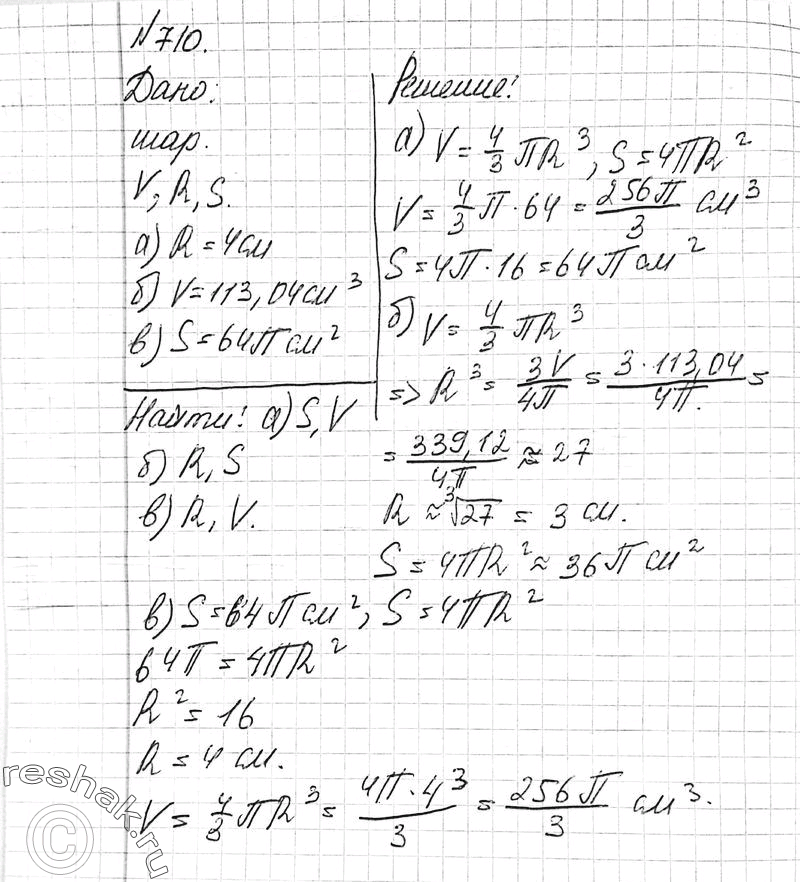 №710.
Дано:
шар.
V, R, S.
а) R = 4см
б) V = 113,04см³
в) S = 64π см²
Найти: а) S, V
б) R, S
в) R, V.
Решение:
а) V = 4/3 πR³, S = 4πR²
V = 4/3 π · 64 = 256π/3 см³
S = 4π · 16 = 64π см²
б) V = 4/3 πR³
=> R³ = 3V/4π = 3 · 113,04/4π. =
= 339,12/4π ≈ 27
R ≈ ³√27 = 3 см.
S = 4πR² ≈ 36π см²
в) S = 64π см², S = 4πR²
64π = 4πR²
R² = 16
R = 4 см.
V = 4/3 πR³ = 4π · 4³/3 = 256π/3 см³.
reshak.ru
©